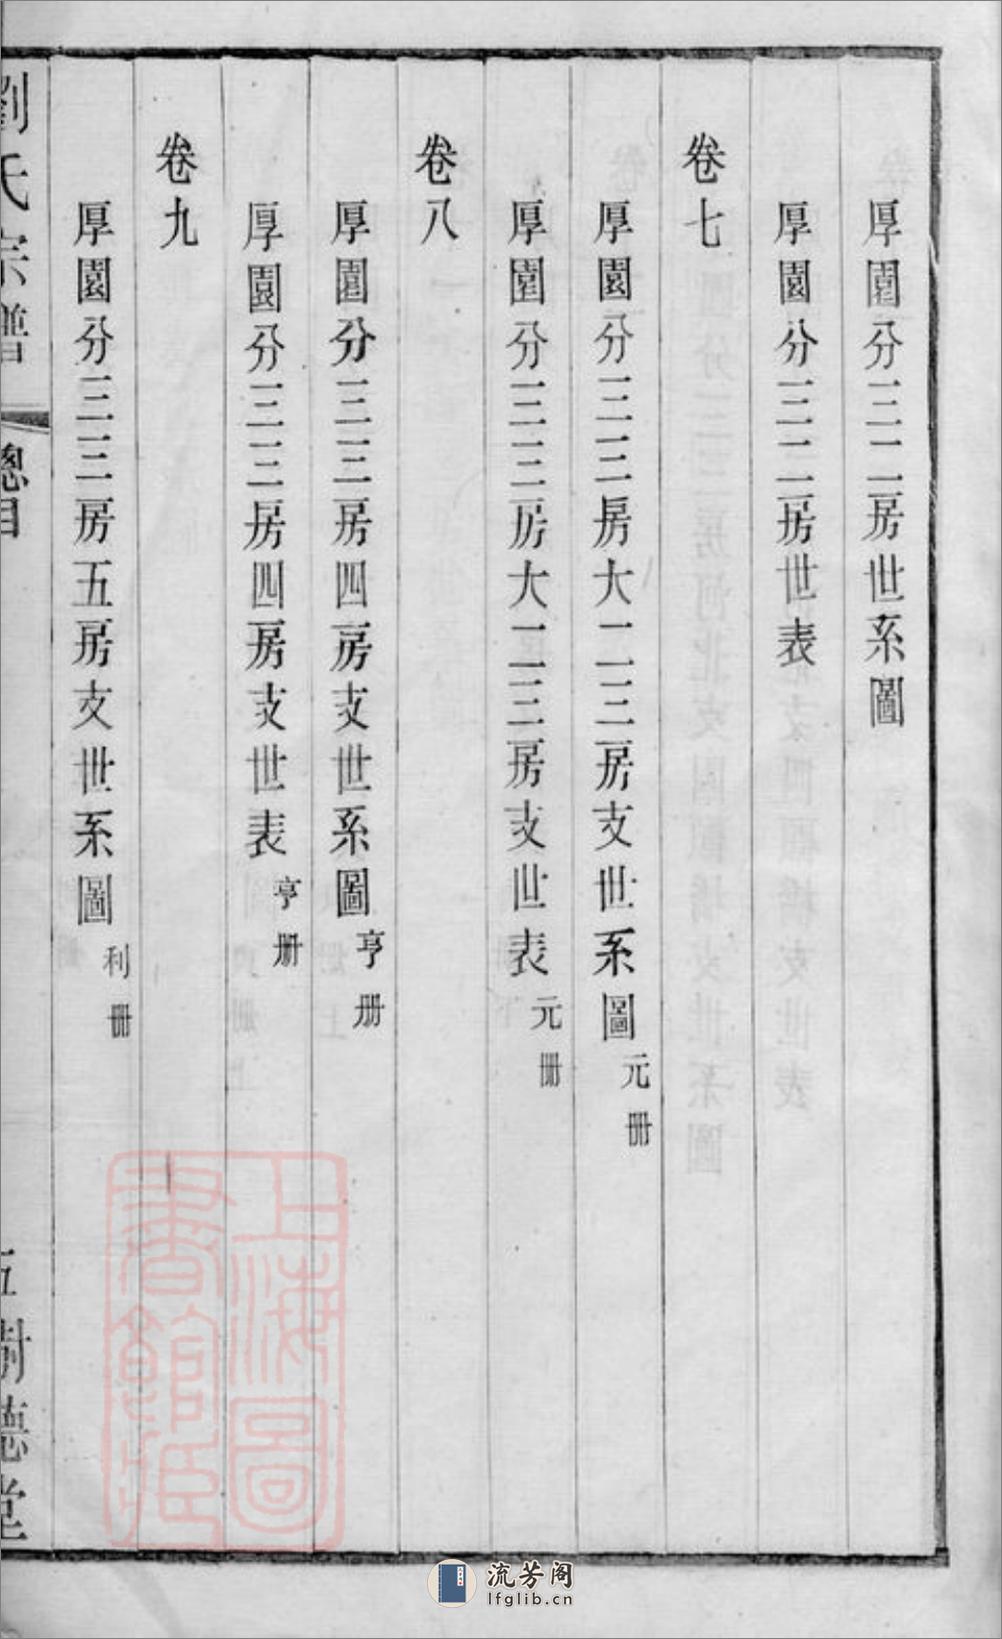 厚園分三二房世系圖
厚園分三二房世表
卷七
厚園分三三房大二三房支世系圖 元冊
厚園分三三房大二三房支世表 元冊
卷八
厚園分三三房四房支世系圖 亨册
厚園分三三房四房支世表 亨册
卷九
厚園分三三房五房支世系圖 利冊
劉氏宗譜 總目 五 樹德堂
上海圖書館藏
流芳阁
lfglib.cn